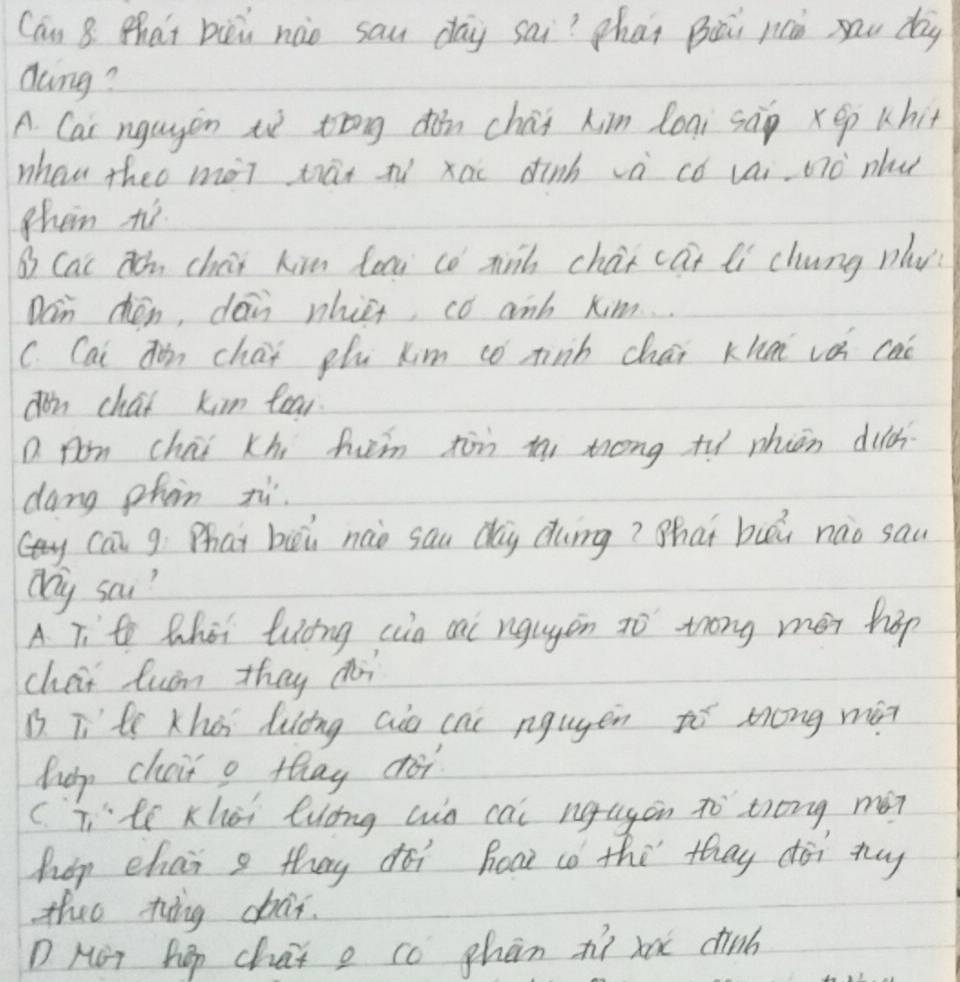 Câu 8. Phát biểu nào sau đây sai? phát Biểu nào sau đây
đúng?
A. Các nguyên tử trong đơn chất kim loại sắp xếp khít
nhau theo một trật tự xác định và có vai trò như
phân tử.
B) Các đơn chất kim loại có tính chất vật lí chung như:
Dẫn điện, dẫn nhiệt, có ánh kim...
C. Các đơn chất phi kim có tính chất khác với các
đơn chất kim loại.
D. Đơn chất khí hiếm tồn tại trong tự nhiên dưới
dạng phân tử.
Câu 9. Phát biểu nào sau đây đúng? Phát biểu nào sau
đây sai?
A. Tỉ lệ khối lượng của các nguyên tố trong một hợp
chất luôn thay đổi
B. Tỉ lệ khối lượng của các nguyên tố trong một
hợp chất o thay đổi.
C. Tỉ lệ khối lượng của các nguyên tố trong một
hợp chất o thay đổi hoặc có thể thay đổi tuỳ
theo từng chất.
D Một hợp chất o có phân tử xác định